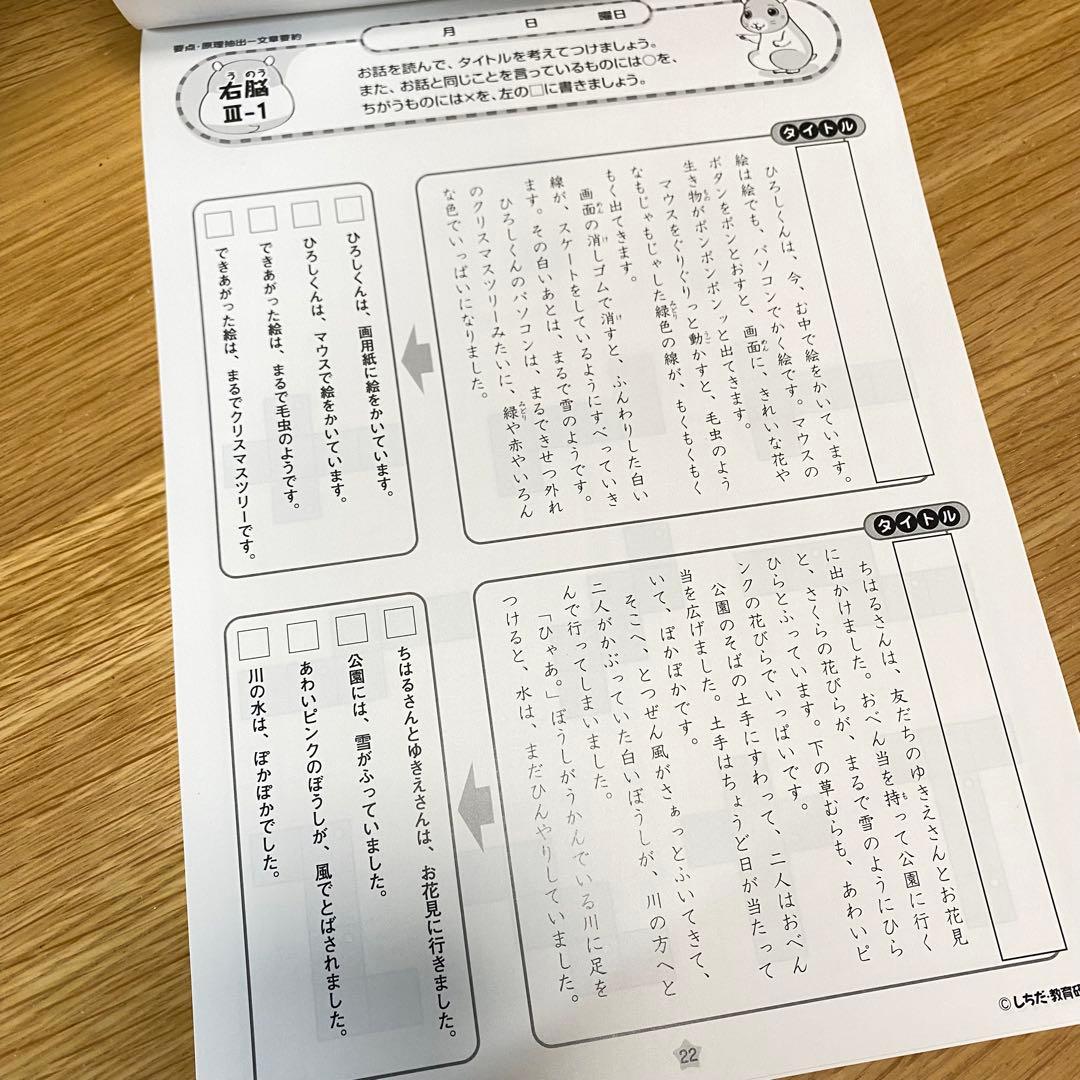 要点・原理抽出—文章要約
月 日 曜日
うのう
右脳
Ⅲ-1
お話を読んで、タイトルを考えてつけましょう。
また、お話と同じことを言っているものには○を、
ちがうものには×を、左の□に書きましょう。
タイトル
ひろしくんは、今、む中で絵をかいています。
絵は絵でも、パソコンでかく絵です。マウスの
ボタンをポンとおすと、画面に、きれいな花や
生き物がポンポンポンッと出てきます。
マウスをぐりぐりっと動かすと、毛虫のよう
なもじゃもじゃした緑色の線が、もくもくもく
もく出てきます。
画面の消しゴムで消すと、ふんわりした白い
線が、スケートをしているようにすべっていき
ます。その白いあとは、まるで雪のようです。
ひろしくんのパソコンは、まるできせつ外れ
のクリスマスツリーみたいに、緑や赤やいろん
な色でいっぱいになりました。
ひろしくんは、画用紙に絵をかいています。
ひろしくんは、マウスで絵をかいています。
できあがった絵は、まるで毛虫のようです。
できあがった絵は、まるでクリスマスツリーです。
タイトル
ちはるさんは、友だちのゆきえさんとお花見
に出かけました。おべん当を持って公園に行く
と、さくらの花びらが、まるで雪のようにひら
ひらとふっています。下の草むらも、あわいピ
ンクの花びらでいっぱいです。
公園のそばの土手にすわって、二人はおべん
当を広げました。土手はちょうど日が当たって
いて、ぽかぽかです。
そこへ、とつぜん風がさぁっとふいてきて、
二人がかぶっていた白いぼうしが、川の方へと
んで行ってしまいました。
「ひゃあ。」ぼうしがうかんでいる川に足を
つけると、水は、まだひんやりしていました。
ちはるさんとゆきえさんは、お花見に行きました。
公園には、雪がふっていました。
あわいピンクのぼうしが、風でとばされました。
川の水は、ぽかぽかでした。
©しちだ・教育研
22